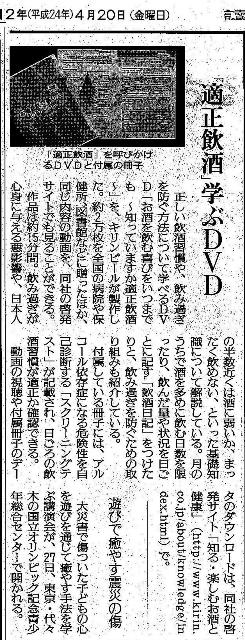 12年(平成24年)4月20日(金曜日)
「適正飲酒」を呼びかけ
るDVDと付属の冊子
「適正飲酒」学ぶDVD
正しい飲酒習慣や、飲み過ぎ
を防ぐ方法について学べるDV
D「お酒を飲む喜びをいつまで
も ~知っていますか適正飲酒
~」を、キリンビールが製作し
た。約2万枚を全国の病院や保
健所、図書館などに贈ったほか、
同じ内容の動画を、同社の啓発
サイトでも見ることができる。
作品は約15分間。飲み過ぎが
心身に与える悪影響や、日本人
の半数近くは酒に弱いか、まっ
たく飲めない、といった基礎知
識について解説している。月の
うちで酒を飲む飲む日数を限
ったり、飲んだ量や状況を日ご
とに記す「飲酒日記」をつけた
りと、飲み過ぎを防ぐための取
り組みも紹介している。
付属している冊子には、アル
コール依存症になる危険性を自
己診断する「スクリーニングテ
スト」が記載され、日ごろの飲
酒習慣が適正か確認できる。
動画の視聴や付属冊子のデー
タのダウンロードは、同社の啓
発サイト「知る・楽しむお酒と
健康」(http://www.kirin.
co.jp/about/knowledge/in
dex.html)で。
遊びで癒やす震災の傷
大災害で傷ついた子どもの心
を遊びを通じて癒やす手法を学
ぶ講演会が、27日、東京・代々
木の国立オリンピック記念青少
年総合センターで開かれる。